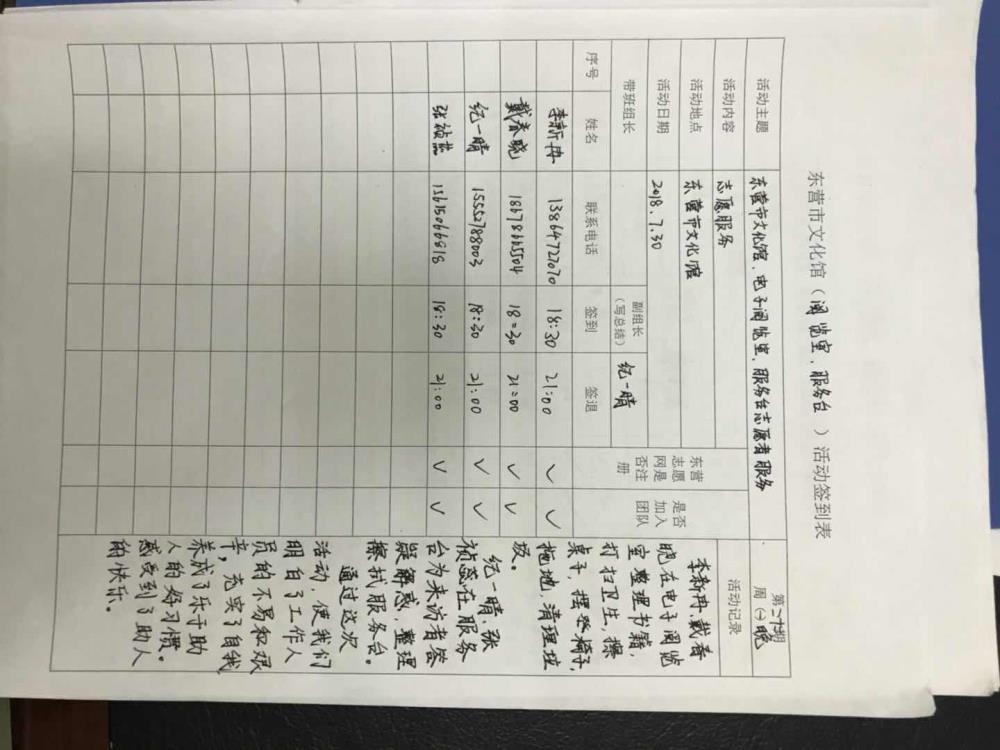 东营市文化馆（阅览室、服务台）活动签到表
活动主题 东营市文化馆、电子阅览室、服务台志愿者服务
周(一)晚
活动内容 志愿服务
活动地点 东营市文化馆
活动日期 2018.7.30
带班组长 副组长（写总结） 纪一晴
序号 姓名 联系电话 签到 签退 东营志愿网是否注册 是否加入团队 活动记录
李新冉 13864727070 18:30 21:00 ✓ ✓
戴春晓 18678665504 18:30 21:00 ✓ ✓
纪一晴 15552788003 18:30 21:00 ✓ ✓
张祯蕊 15615066818 18:30 21:00 ✓ ✓
李新冉、戴春
晓在电子阅览
室整理书籍,
打扫卫生,擦
桌子,摆整椅子,
拖地,清理垃
圾。
纪一晴、张
祯蕊在服务
台为来访者答
疑解惑,整理
擦拭服务台。
通过这次
活动,使我们
明白了工作人
员的不易和艰
辛,充实了自我,
养成了乐于助
人的好习惯。
感受到了助人
的快乐。